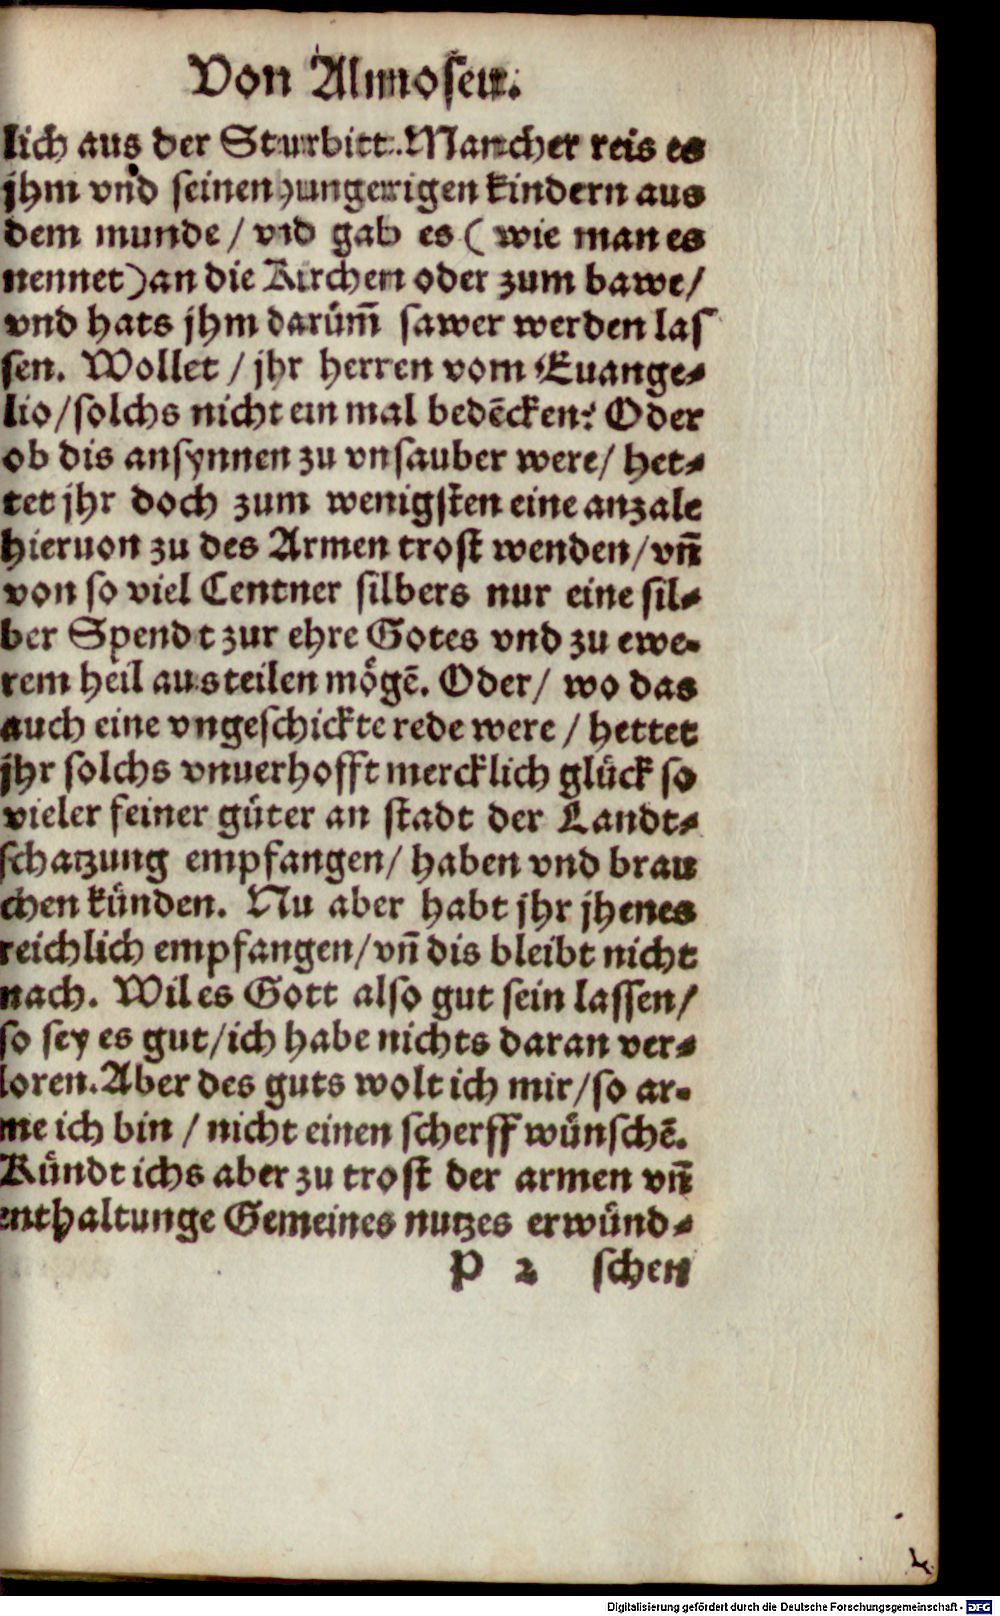 Von Almosen.
lich aus der Sturbitt. Mancher reis es
jhm vnd seinen hungerigen kindern aus
dem munde / vnd gab es ( wie man es
nennet ) an die Kirchen oder zum bawe /
vnd hats jhm darüm̃ sawer werden las
sen. Wollet / jhr herren vom Euange-
lio / solchs nicht ein mal bedēcken? Oder
ob dis ansynnen zu vnsauber were / het-
tet jhr doch zum wenigsten eine anzale
hieruon zu des Armen trost wenden / vñ
von so viel Centner silbers nur eine sil-
ber Spendt zur ehre Gotes vnd zu ewe-
rem heil austeilen mögē. Oder / wo das
auch eine vngeschickte rede were / hettet
jhr solchs vnuerhofft mercklich glück so
vieler feiner güter an stadt der Landt-
schatzung empfangen / haben vnd brau
chen künden. Nu aber habt jhr jhenes
reichlich empfangen / vñ dis bleibt nicht
nach. Wil es Gott also gut sein lassen /
so sey es gut / ich habe nichts daran ver-
loren. Aber des guts wolt ich mir / so ar-
me ich bin / nicht einen scherff wünschē.
Kündt ichs aber zu trost der armen vñ
enthaltunge Gemeines nutzes erwünd-
P 2 schen
Digitalisierung gefördert durch die Deutsche Forschungsgemeinschaft - DFG